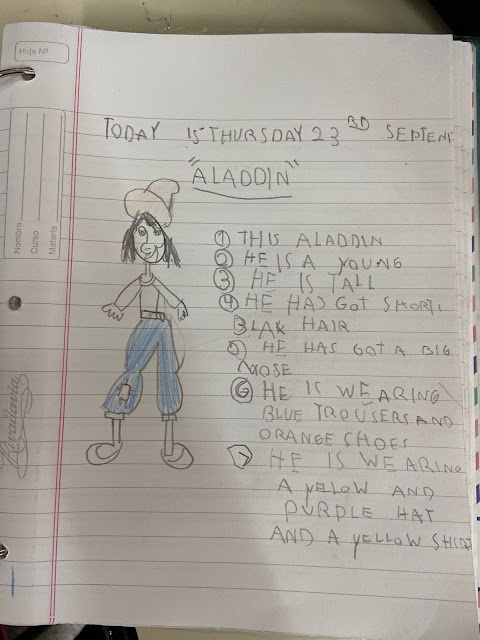 Hoja Nº
Nombre
Curso
Materia
Rivadavia
TODAY IS THURSDAY 23RD SEPTEM
"ALADDIN"
① THIS ALADDIN
② HE IS A YOUNG
③ HE IS TALL
④ HE HAS GOT SHORT
BLAK HAIR
⑤ HE HAS GOT A BIG
NOSE
⑥ HE IS WEARING
BLUE TROUSERS AND
ORANGE SHOES
⑦ HE IS WEARING
A yELLOW AND
PURPLE HAT
AND A yELLOW SHIRT